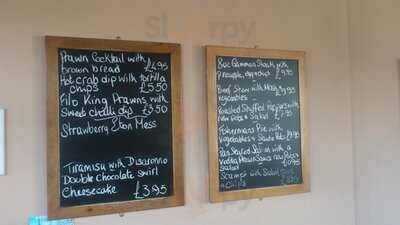 Prawn Cocktail with
brown bread £4.95
Hot crab dip with tortilla
chips £5.50
Filo King Prawns with
Sweet chilli dip £3.50
Strawberry Eton Mess
Tiramisu with Disaronno
Double chocolate swirl
Cheesecake £3.95
8oz Gammon Steak with
pineapple, egg + chips £7.95
Beef Stew with
vegetables
Roasted Stuffed Peppers with
new pots + Salad
Fishermans Pie with
vegetables
with a
Vodka
Salad
Scampi with Salad
+ chips